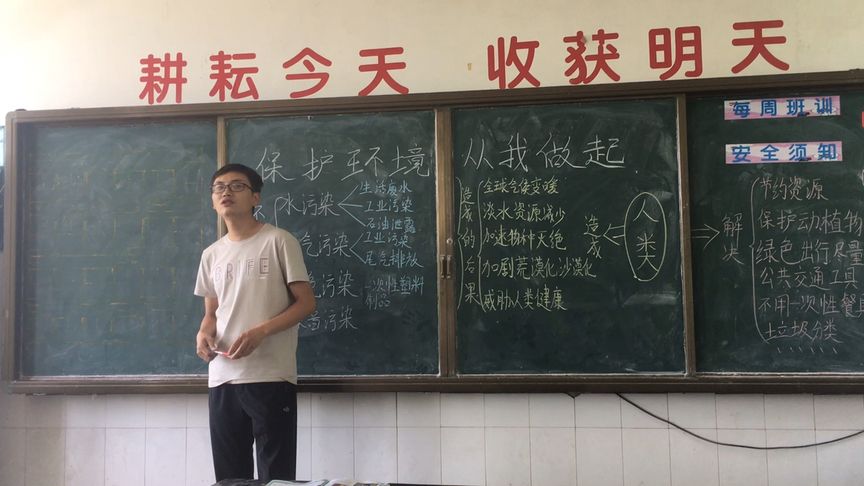 耕耘今天 收获明天
每周班训
安全须知
保护环境 从我做起
水污染
生活废水
工业污染
石油泄露
气污染
工业污染
尾气排放
污染
一次性塑料
制品
污染
造成的后果
全球气候变暖
淡水资源减少
加速物种灭绝
加剧荒漠化沙漠化
威胁人类健康
造成
人类
解决
节约资源
保护动植物
绿色出行尽量
公共交通工具
不用一次性餐
垃圾分类